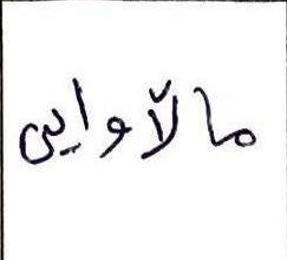 ماڵاوایی